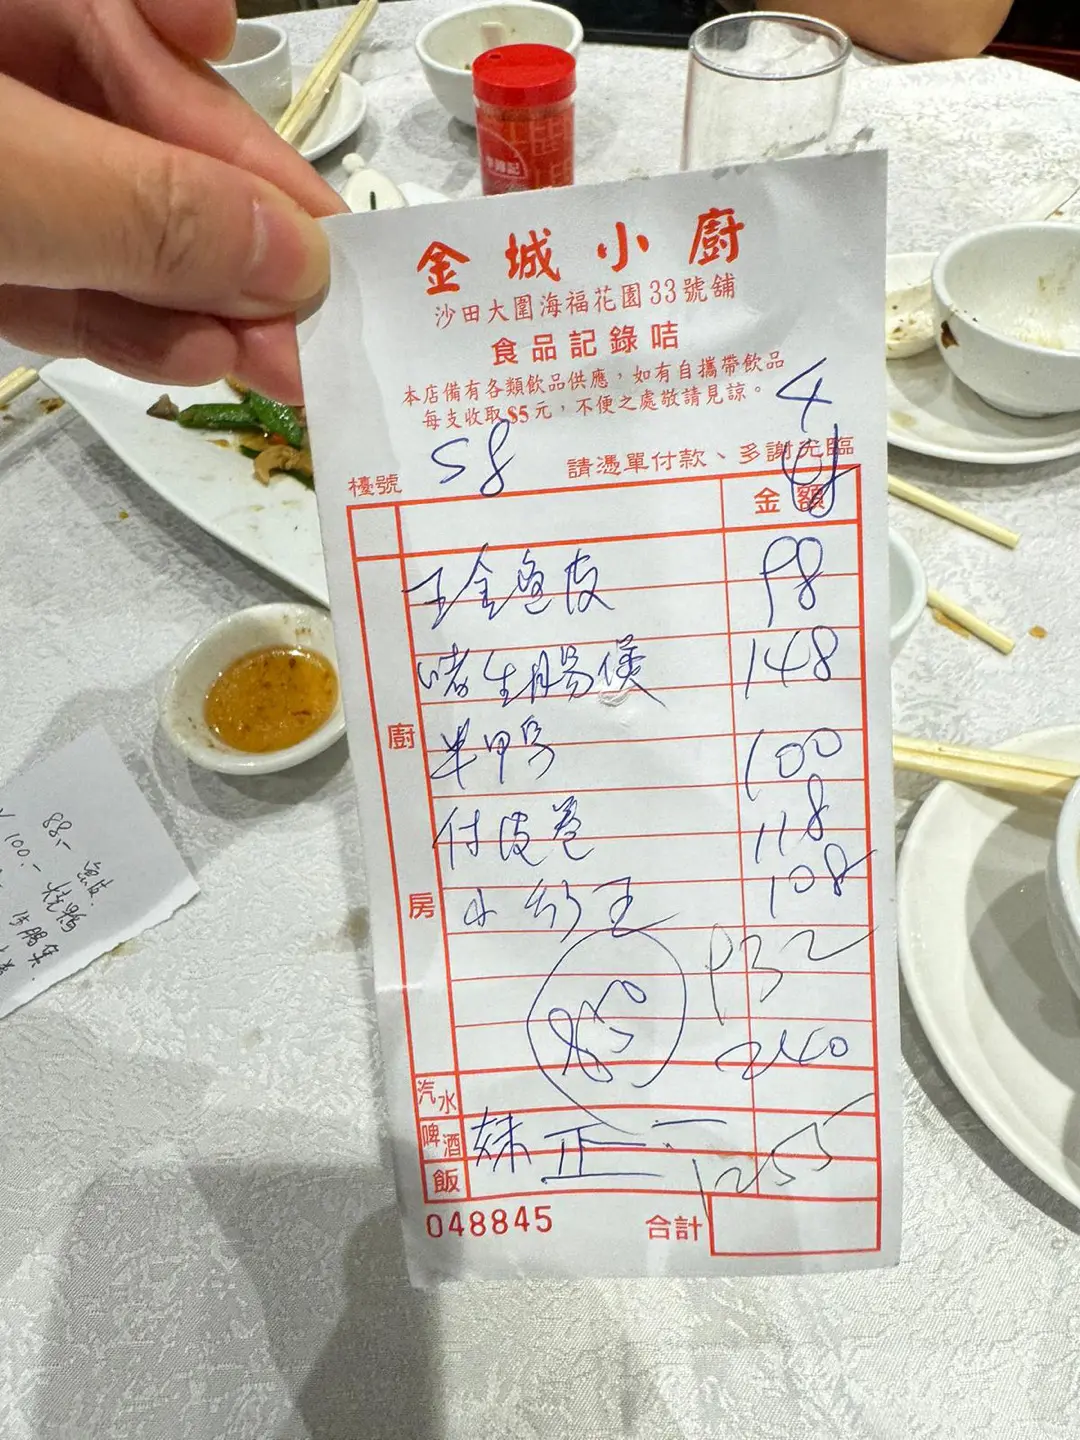 李錦記
金城小廚
沙田大圍海福花園33號舖
食品記錄咭
本店備有各類飲品供應，如有自攜帶飲品
每支收取$5元，不便之處敬請見諒。
4
檯號 S8 請憑單付款、多謝光臨
金額
廚房
98
啫生腸煲 148
半甲鸟 100
付皮卷 118
小炒王 108
932
850
240
汽水
啤酒
飯
正一
1255
048845 合計
88.-
100.-